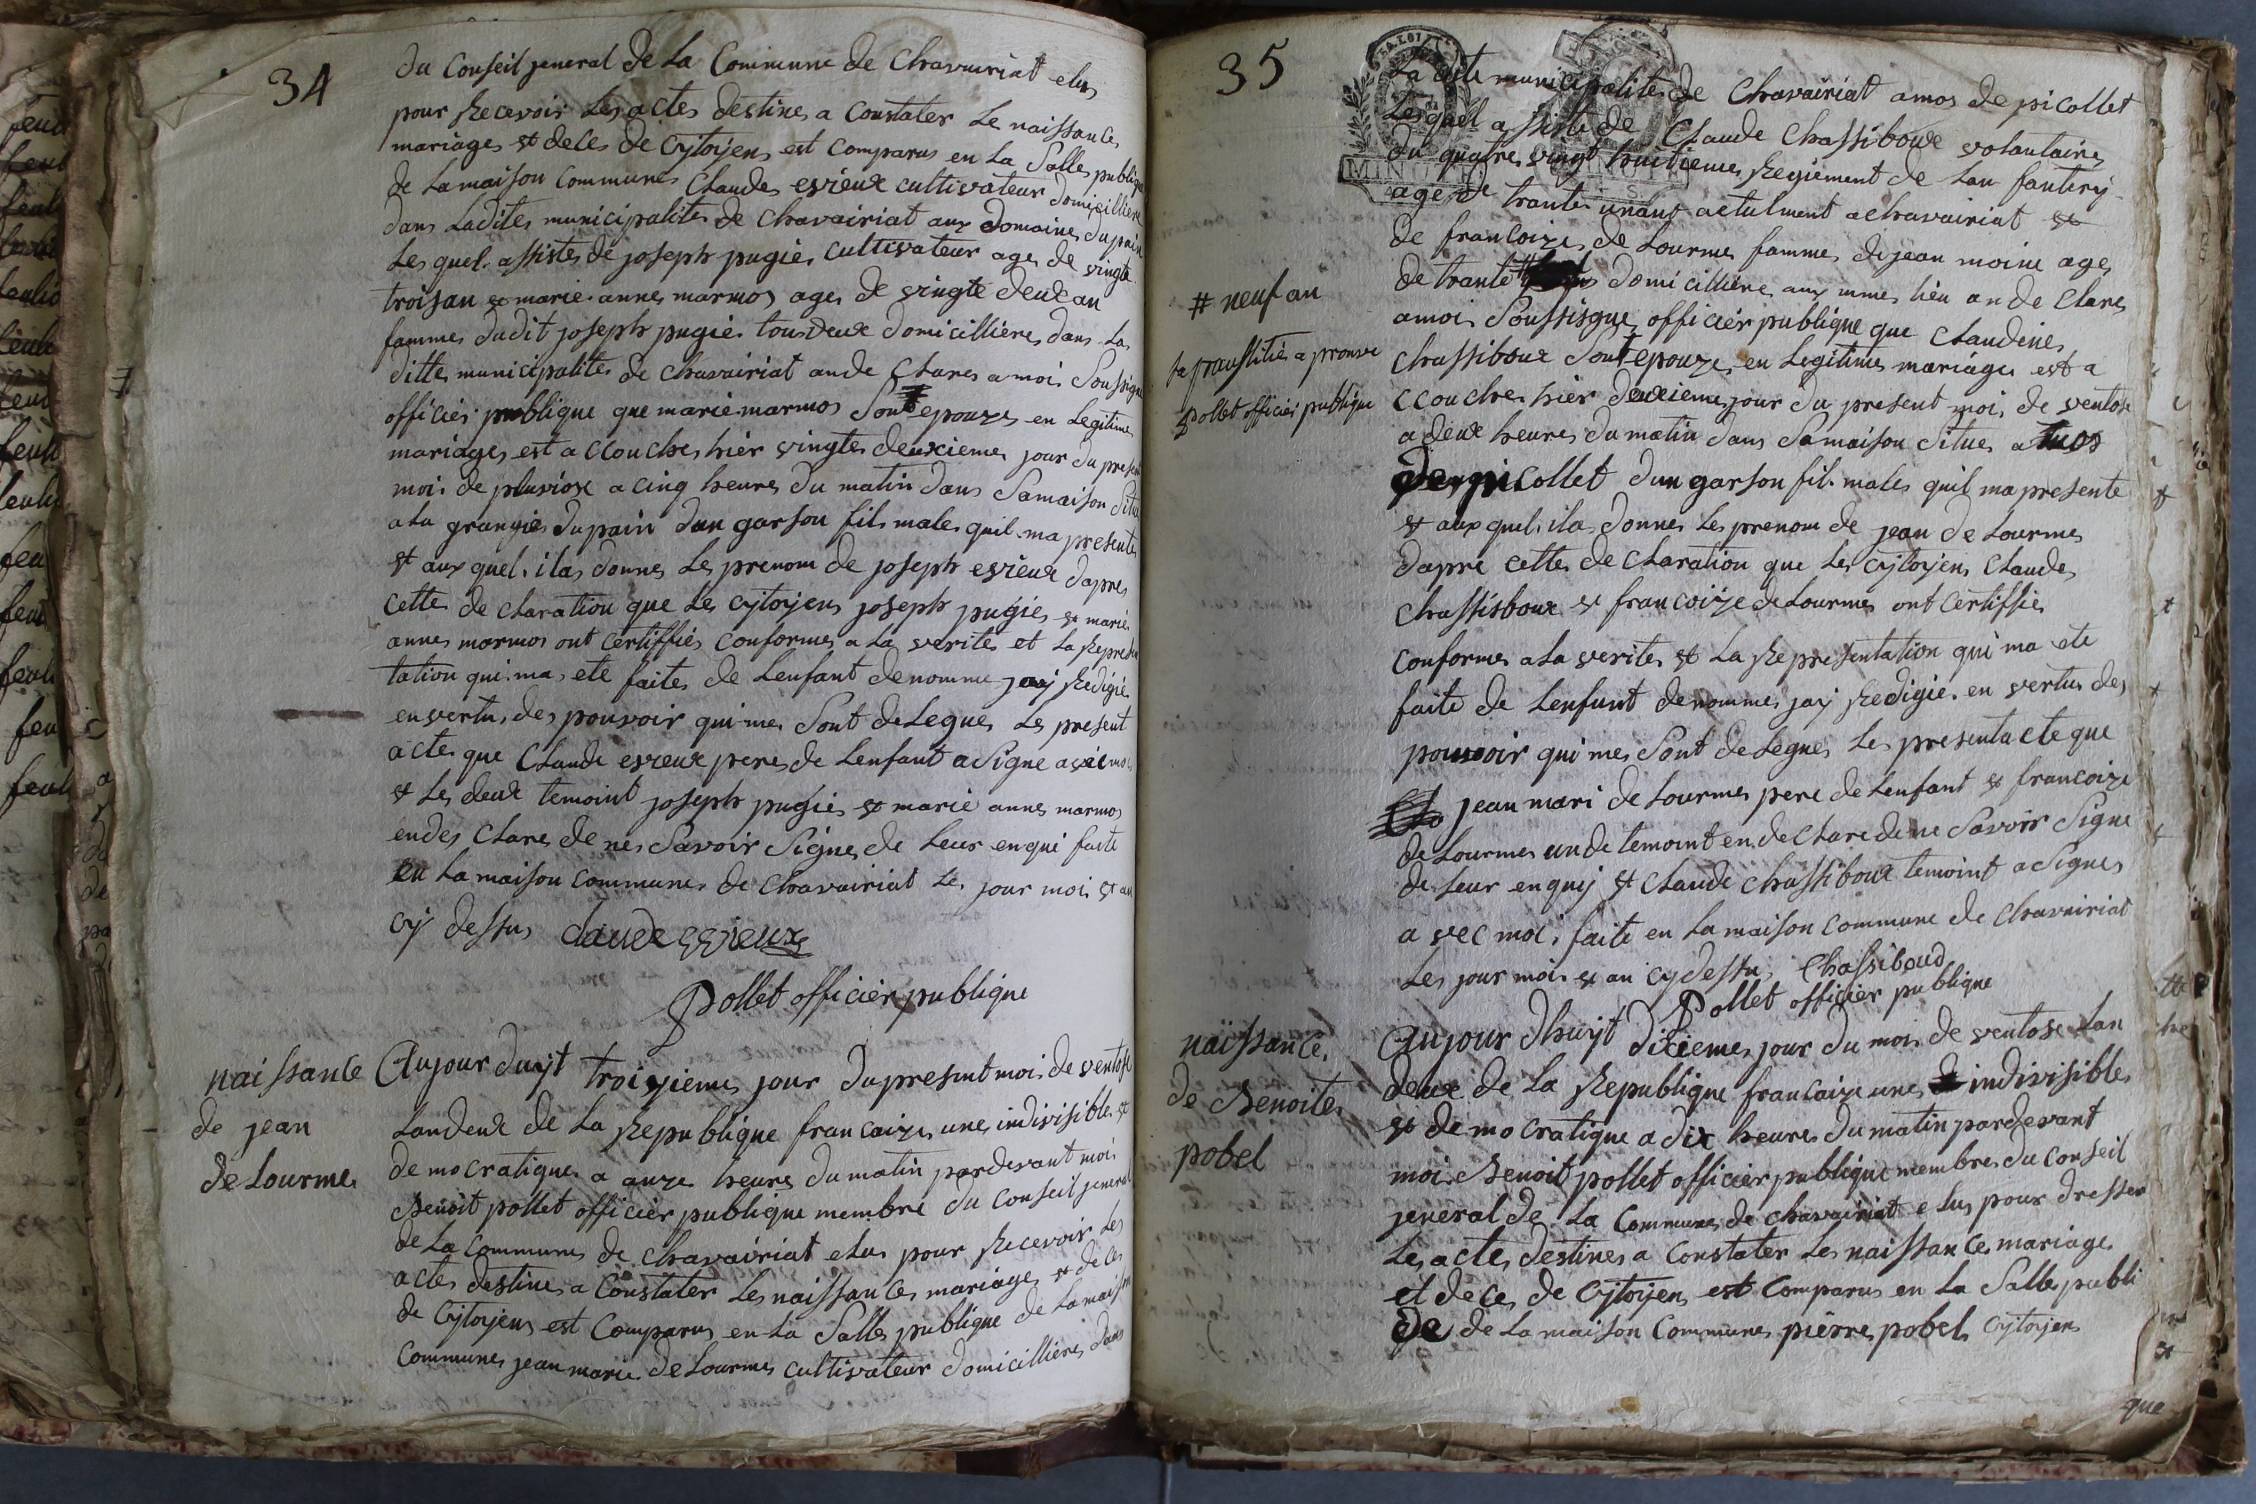 34
du Conseil jeneral de La Commune de Chavairiat elus
pour Recevoir Les actes destines a Constater Le naissances
mariages et deces de Cytoyens est Comparus en La Salles publique
de Lamaison Communes Claudes evieux cultivateur domicilliere
dans Ladites municipalites de Chavairiat aux domaines dupain
Les quel. assistes de joseph pugies cultivateur ages de vingte
troisan et marie annes marmos ages de vingte deux an
fammes dudit joseph pugie. tousdeux domicillieres dans La
ditte municipalites de Chavairiat ande Clares a moi Soussigne
officier publique que marie marmos Sont epouzes en Legitimes
mariages est a ccouches hier vingtes deuxiemes jour du present
moi de pluviose a cinq heures du matin dans Samaison Situe
a La grangies dupain dun garson fils males quil ma presentes
et aux quel. ila donnes Les prenom de joseph evieux dapres
Cettes de claration que Les cytoyens joseph pugies et marie
annes marmos ont certiffies Conformes a La verites et La Represen
tation qui ma ete faites de Lenfant denomme jay Redigie
en vertus des pouvoir qui mes Sont deLegues Les present
actes que Claude evieux peres de Lenfant a Signe avec moi
et Les deux temoint joseph pugies et marie annes marmos
en des Clare de nes Savoir Signes de Leur enqui faite
en La maison Communes de Chavairiat Le jour moi et an
cy dessus Claude evvieux
Pollet officier publique
naissance
de jean
de Lourmes
Aujour duyt troiziemes jour du present moi de ventose
Landeux de La Republique francaizes une indivisibles et
de mocratiques a onze heures du matin pardevant moi
Benoit pollet officier publique membre du Conseil jeneral
de La Communes de Chavairiat elus pour Recevoir Les
actes destines a Constater Les naissances mariages et deces
de Cytoyens est Comparus en La Salles publique de Lamaison
Communes jean marie de Lourmes cultivateur domicillieres dans
35
La dite municipalites de Chavairiat amos de picollet
Lesquel a ssiste de Claude Chassiboux volontaires
du quatres vingt huitiemes Regiement de Lan fantery
ages de trante unant actulment a Chavairiat et
de francoizes de Lourmes fammes de jean moine ages
de trante # domicillieres aux mmes lieu an de Clares
amoi Soussisgnes officier publique que Claudines
Chassiboux Sont epouzes en Legitimes mariages est a
ccouches hier deuxiemes jour du present moi de ventose
a deux heures du matin dans Samaison Situes a mos
de picollet dun garson fil. males quil ma presente
et aux quel. ila donnes Les prenom de jean de Lourmes
dapre cettes de Claration que Les Cytoyens Claudes
Chassisboux et francoize de Lourmes ont certiffies
Conformes a La verites et La Representation qui ma ete
faite de Lenfant denommes jay Redigie. en vertus des
pouvoir qui mes Sont deLegues Les presentacte que
jean mari de Lourmes pere de Lenfant et francoize
de Lourmes unde temoint en de Clare dene Savoir Signe
de Leur en quy et Claude Chassiboux temoint a Signes
a vec moi. faite en La maison Commune de Chavairiat
Les jour moi et an cy dessu. Chassiboud
Pollet officier publique
# neuf an
Pollet officier publique
naissance
de Benoites
pobel
Aujour dhuyt dixiemes jour du mois de ventose Lan
deux de La Republique francaize une indivisibles
et de mo cratique a dix heures du matin pardevant
moi Benoit pollet officier publique membres du Conseil
jeneral de La Communes de Chavairiat e Lus pour dresser
Les actes destines a Constater Les naissances mariages
et deces de Cytoyens est Comparus en La Salles publi
de de La maison Communes pierre pobel Cytoyens
que